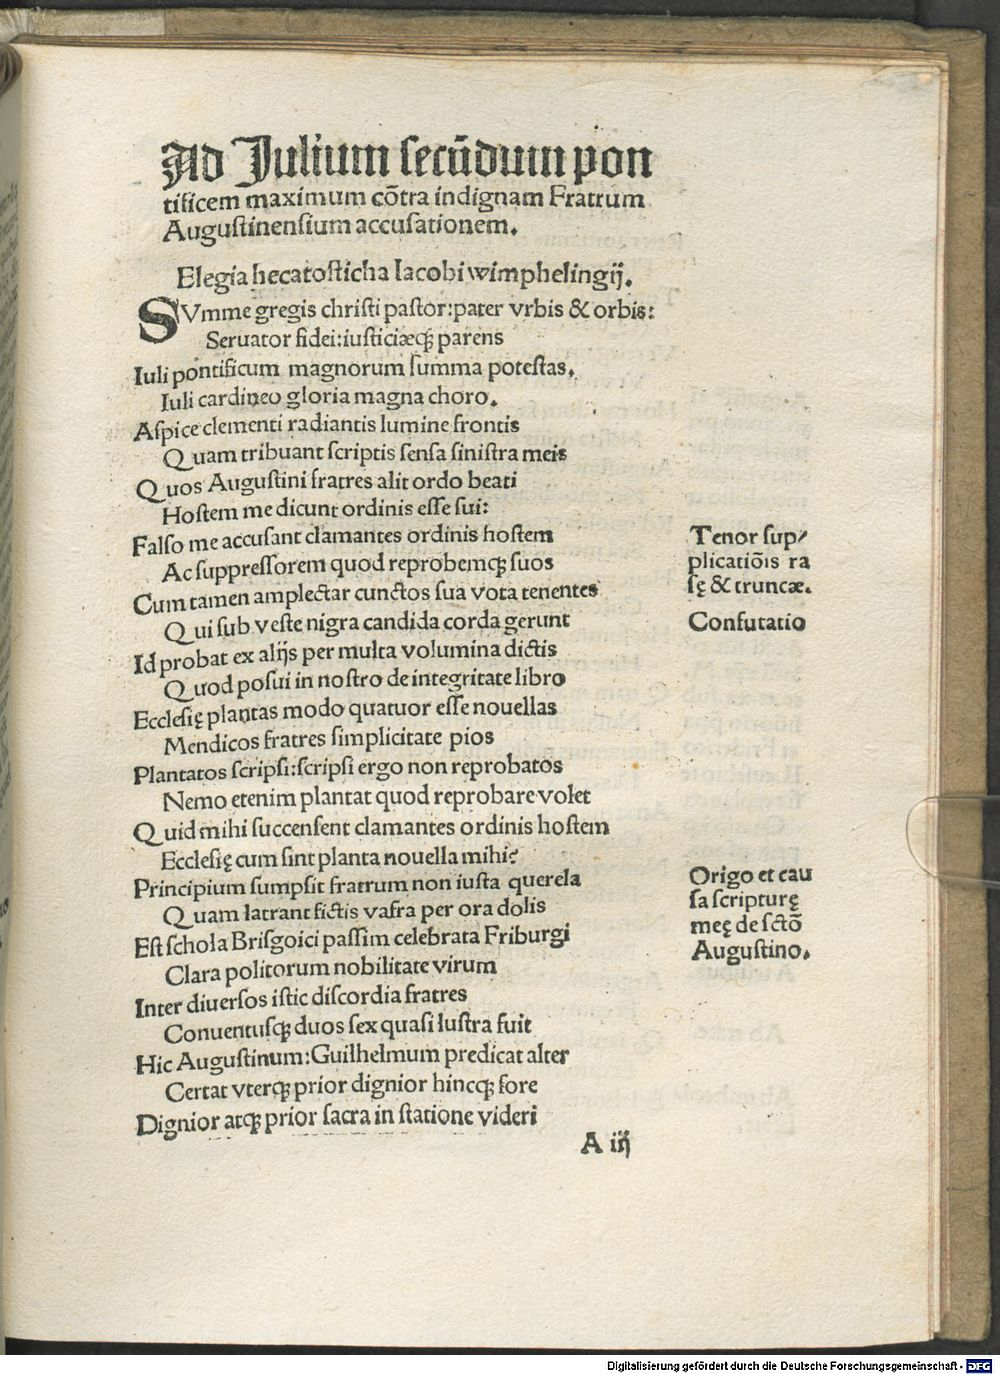 Ad Iulium secūdum pon
tificem maximum cōtra indignam Fratrum
Augustinensium accusationem.
Elegia hecatosticha Iacobi wimphelingij.
SVmme gregis christi pastor: pater vrbis & orbis:
Seruator fidei: iusticiæqꝫ parens
Iuli pontificum magnorum summa potestas.
Iuli cardineo gloria magna choro.
Aspice clementi radiantis lumine frontis
Quam tribuant scriptis sensa sinistra meis
Quos Augustini fratres alit ordo beati
Hostem me dicunt ordinis esse sui:
Falso me accusant clamantes ordinis hostem
Ac suppressorem quod reprobemqꝫ suos
Cum tamen amplectar cunctos sua vota tenentes
Qui sub veste nigra candida corda gerunt
Id probat ex alijs per multa volumina dictis
Quod posui in nostro de integritate libro
Ecclesię plantas modo quatuor esse nouellas
Mendicos fratres simplicitate pios
Plantatos scripsi: scripsi ergo non reprobatos
Nemo etenim plantat quod reprobare volet
Quid mihi succensent clamantes ordinis hostem
Ecclesię cum sint planta nouella mihi?
Principium sumpsit fratrum non iusta querela
Quam latrant fictis vafra per ora dolis
Est schola Brisgoici passim celebrata Friburgi
Clara politorum nobilitate virum
Inter diuersos istic discordia fratres
Conuentusqꝫ duos sex quasi lustra fuit
Hic Augustinum: Guilhelmum predicat alter
Certat vterqꝫ prior dignior hincqꝫ fore
Dignior atqꝫ prior sacra in statione videri
A iij
Tenor sup/
plicatiōis ra
sę & truncæ.
Confutatio
Origo et cau
sa scripturę
meę de sctō
Augustino.
Digitalisierung gefördert durch die Deutsche Forschungsgemeinschaft - DFG